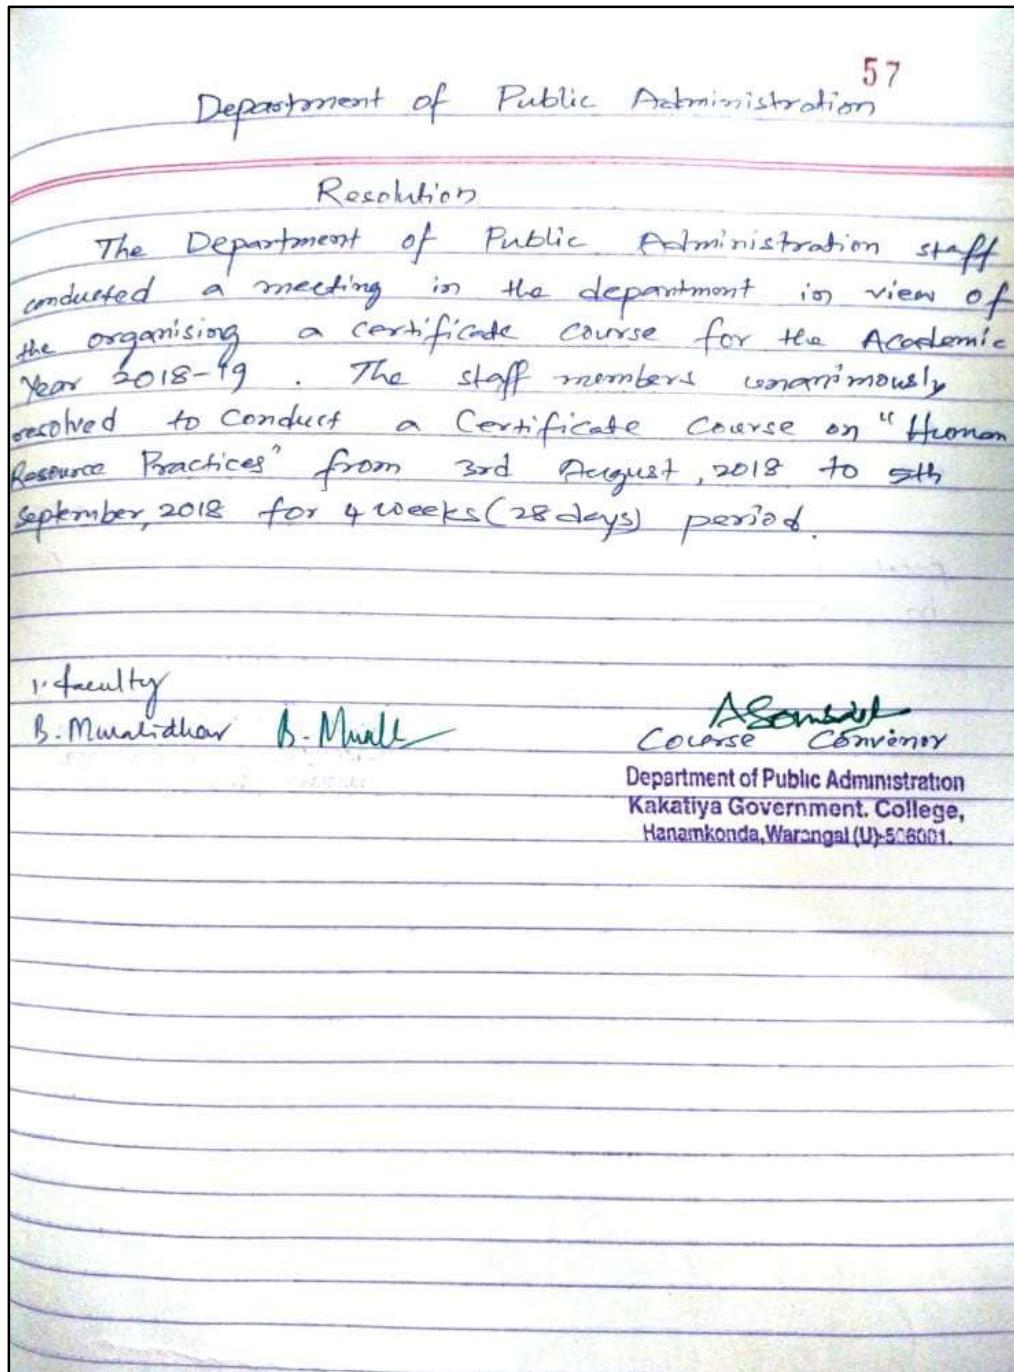 57
Department of Public Administration
Resolution
The Department of Public Administration staff
conducted a meeting in the department in view of
the organising a certificate course for the Academic
Year 2018-19. The staff members unanimously
resolved to conduct a Certificate Course on "Human
Resource Practices" from 3rd August, 2018 to 5th
September, 2018 for 4 weeks (28 days) period.
1. faculty
B. Muralidhar B. Murali
Course Convenor
Department of Public Administration
Kakatiya Government. College,
Hanamkonda, Warangal (U)-506001.